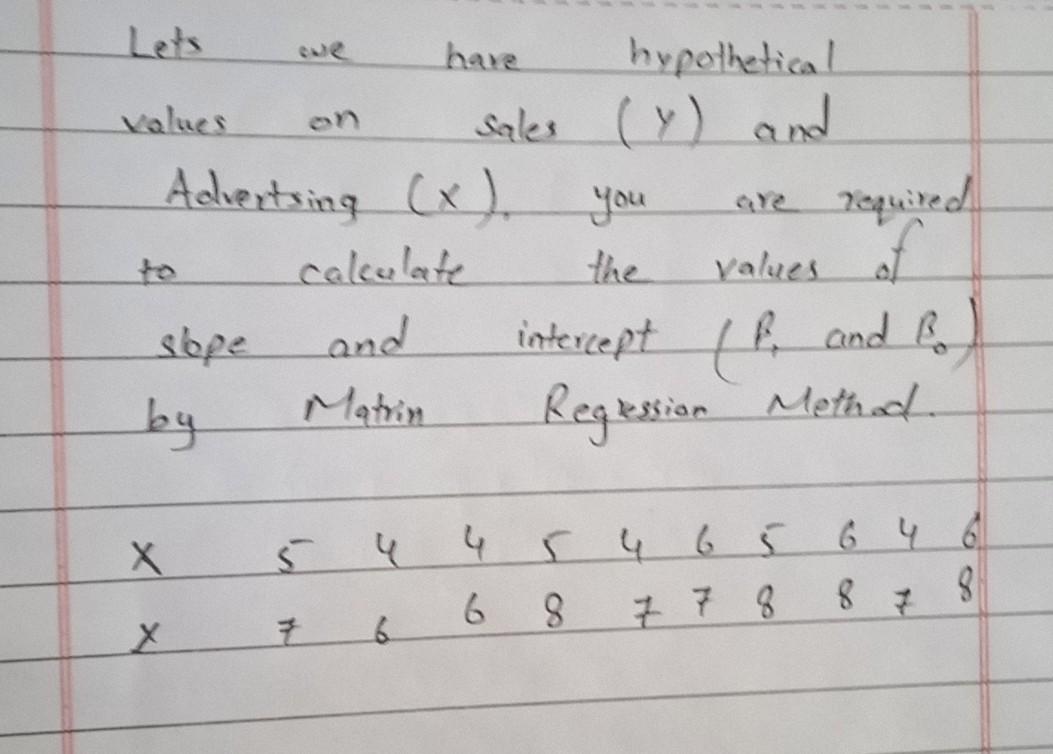 Lets we have hypothetical
values on sales (Y) and
Advertsing (X). you are required
to calculate the values of
slope and intercept (β₁ and β₀)
by Matrin Regression Method.
X 5 4 4 5 4 6 5 6 4 6
Y 7 6 6 8 7 7 8 8 7 8